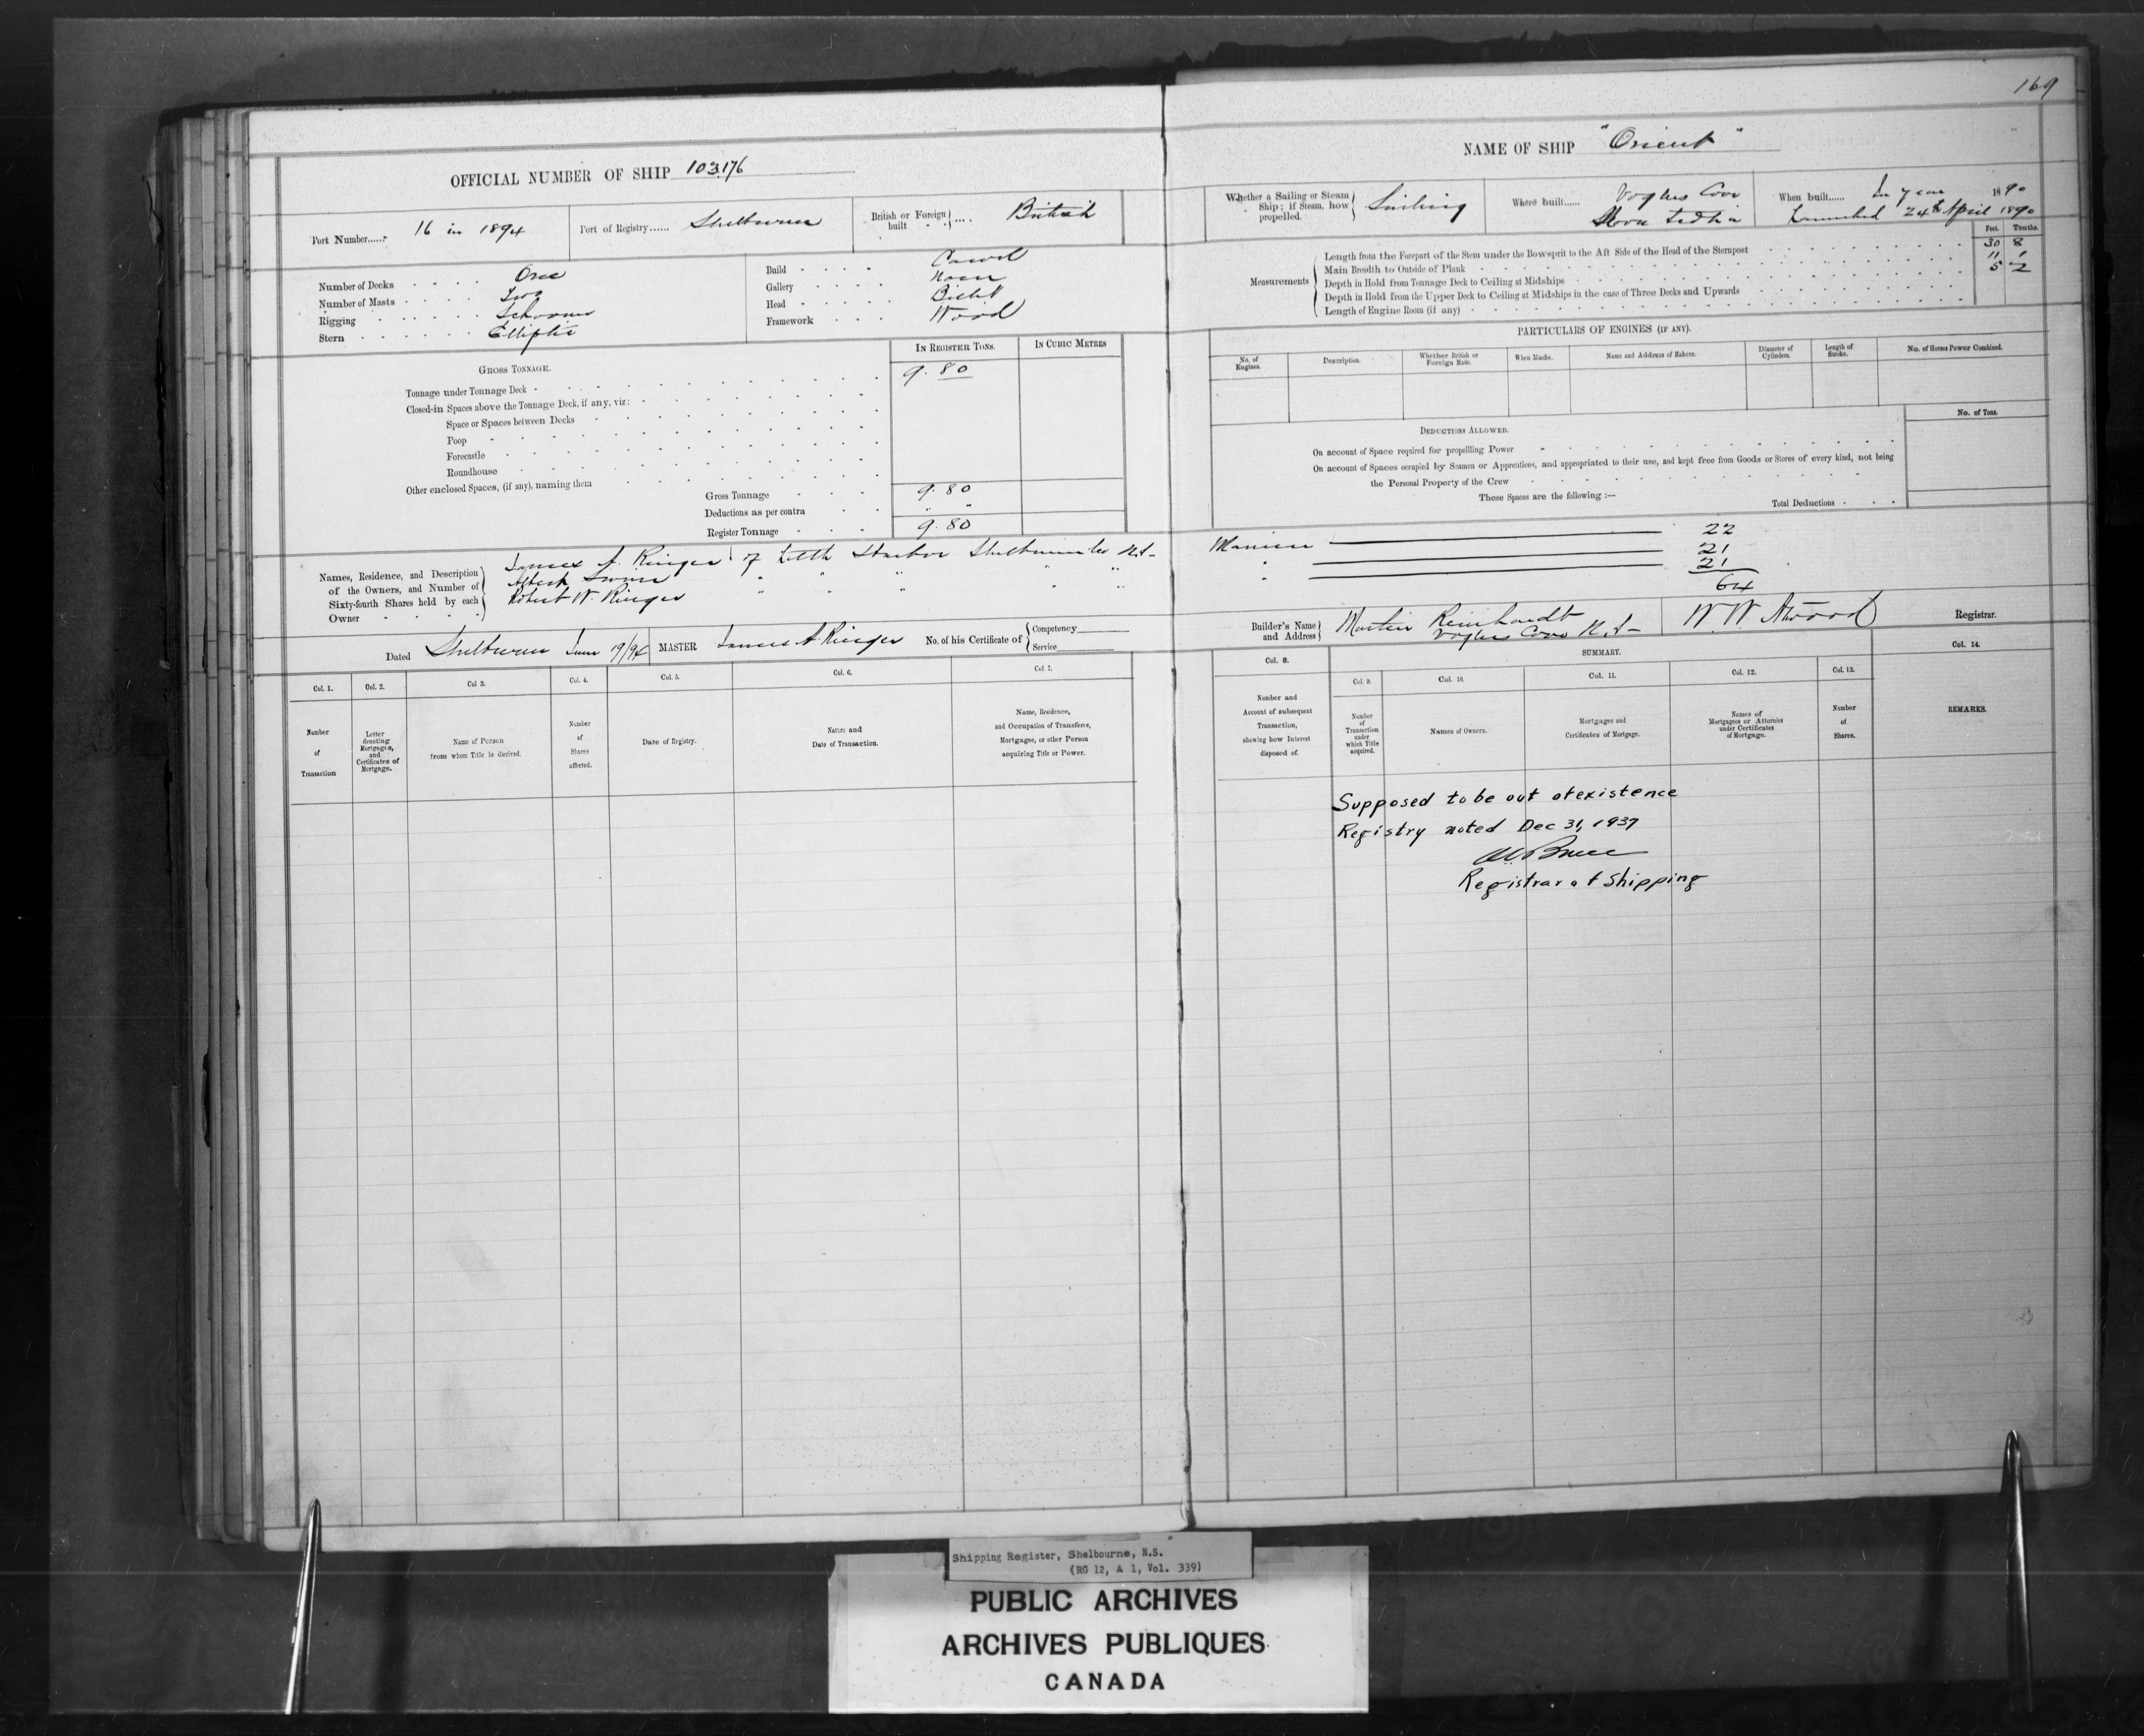 169
OFFICIAL NUMBER OF SHIP 103,176
NAME OF SHIP "Orient"
Port Number...... 16 in 1894
Port of Registry...... Shelburne
British or Foreign built .... British
Whether a Sailing or Steam Ship; if Steam, how propelled. Sailing
Where built...... Voglers Cove
Nova Scotia
When built...... In year 1890
Launched 24th April 1890
Number of Decks One
Number of Masts Two
Rigging Schooner
Stern Elliptic
Build Carvel
Gallery None
Head Billet
Framework Wood
Measurements
Feet. Tenths.
Length from the Forepart of the Stem under the Bowsprit to the Aft Side of the Head of the Sternpost 30 8
Main Breadth to Outside of Plank 11 1
Depth in Hold from Tonnage Deck to Ceiling at Midships 5 2
Depth in Hold from the Upper Deck to Ceiling at Midships in the case of Three Decks and Upwards
Length of Engine Room (if any)
GROSS TONNAGE.
IN REGISTER TONS.
IN CUBIC METRES
Tonnage under Tonnage Deck 9.80
Closed-in Spaces above the Tonnage Deck, if any, viz:
Space or Spaces between Decks
Poop
Forecastle
Roundhouse
Other enclosed Spaces, (if any), naming them
Gross Tonnage 9.80
Deductions as per contra " "
Register Tonnage 9.80
PARTICULARS OF ENGINES (IF ANY).
No. of Engines.
Description.
Whether British or Foreign Made.
When Made.
Name and Address of Makers.
Diameter of Cylinders.
Length of Stroke.
No. of Horses Power Combined.
DEDUCTIONS ALLOWED.
No. of Tons.
On account of Space required for propelling Power
On account of Spaces occupied by Seamen or Apprentices, and appropriated to their use, and kept free from Goods or Stores of every kind, not being
the Personal Property of the Crew
These Spaces are the following:—
Total Deductions
Names, Residence, and Description of the Owners, and Number of Sixty-fourth Shares held by each Owner
James A. Ringer of Little Harbor Shelburne Co N.S. Mariner 22
Albert Swim " " " " " " 21
Robert W. Ringer " " " " " " 21
64
Dated Shelburne June 19/94
MASTER James A. Ringer
No. of his Certificate of Competency
Service
Builder's Name and Address Martin Reinhardt
Voglers Cove N.S.
W. W. Atwood Registrar.
SUMMARY.
Col. 1. Number of Transaction
Col. 2. Letter denoting Mortgages, and Certificates of Mortgage.
Col 3. Name of Person from whom Title is derived.
Col. 4. Number of Shares affected.
Col. 5. Date of Registry.
Col. 6. Nature and Date of Transaction.
Col 7. Name, Residence, and Occupation of Transferee, Mortgagee, or other Person acquiring Title or Power.
Col. 8. Number and Account of subsequent Transaction, showing how Interest disposed of.
Col. 9. Number of Transaction under which Title acquired.
Col. 10. Names of Owners.
Col. 11. Mortgages and Certificates of Mortgage.
Col. 12. Names of Mortgagees or Attornies under Certificates of Mortgage.
Col. 13. Number of Shares.
Col. 14. REMARKS.
Supposed to be out of existence
Registry noted Dec 31, 1937
Bruce
Registrar of Shipping
Shipping Register, Shelbourne, N.S.
(RG 12, A 1, Vol. 339)
PUBLIC ARCHIVES
ARCHIVES PUBLIQUES
CANADA